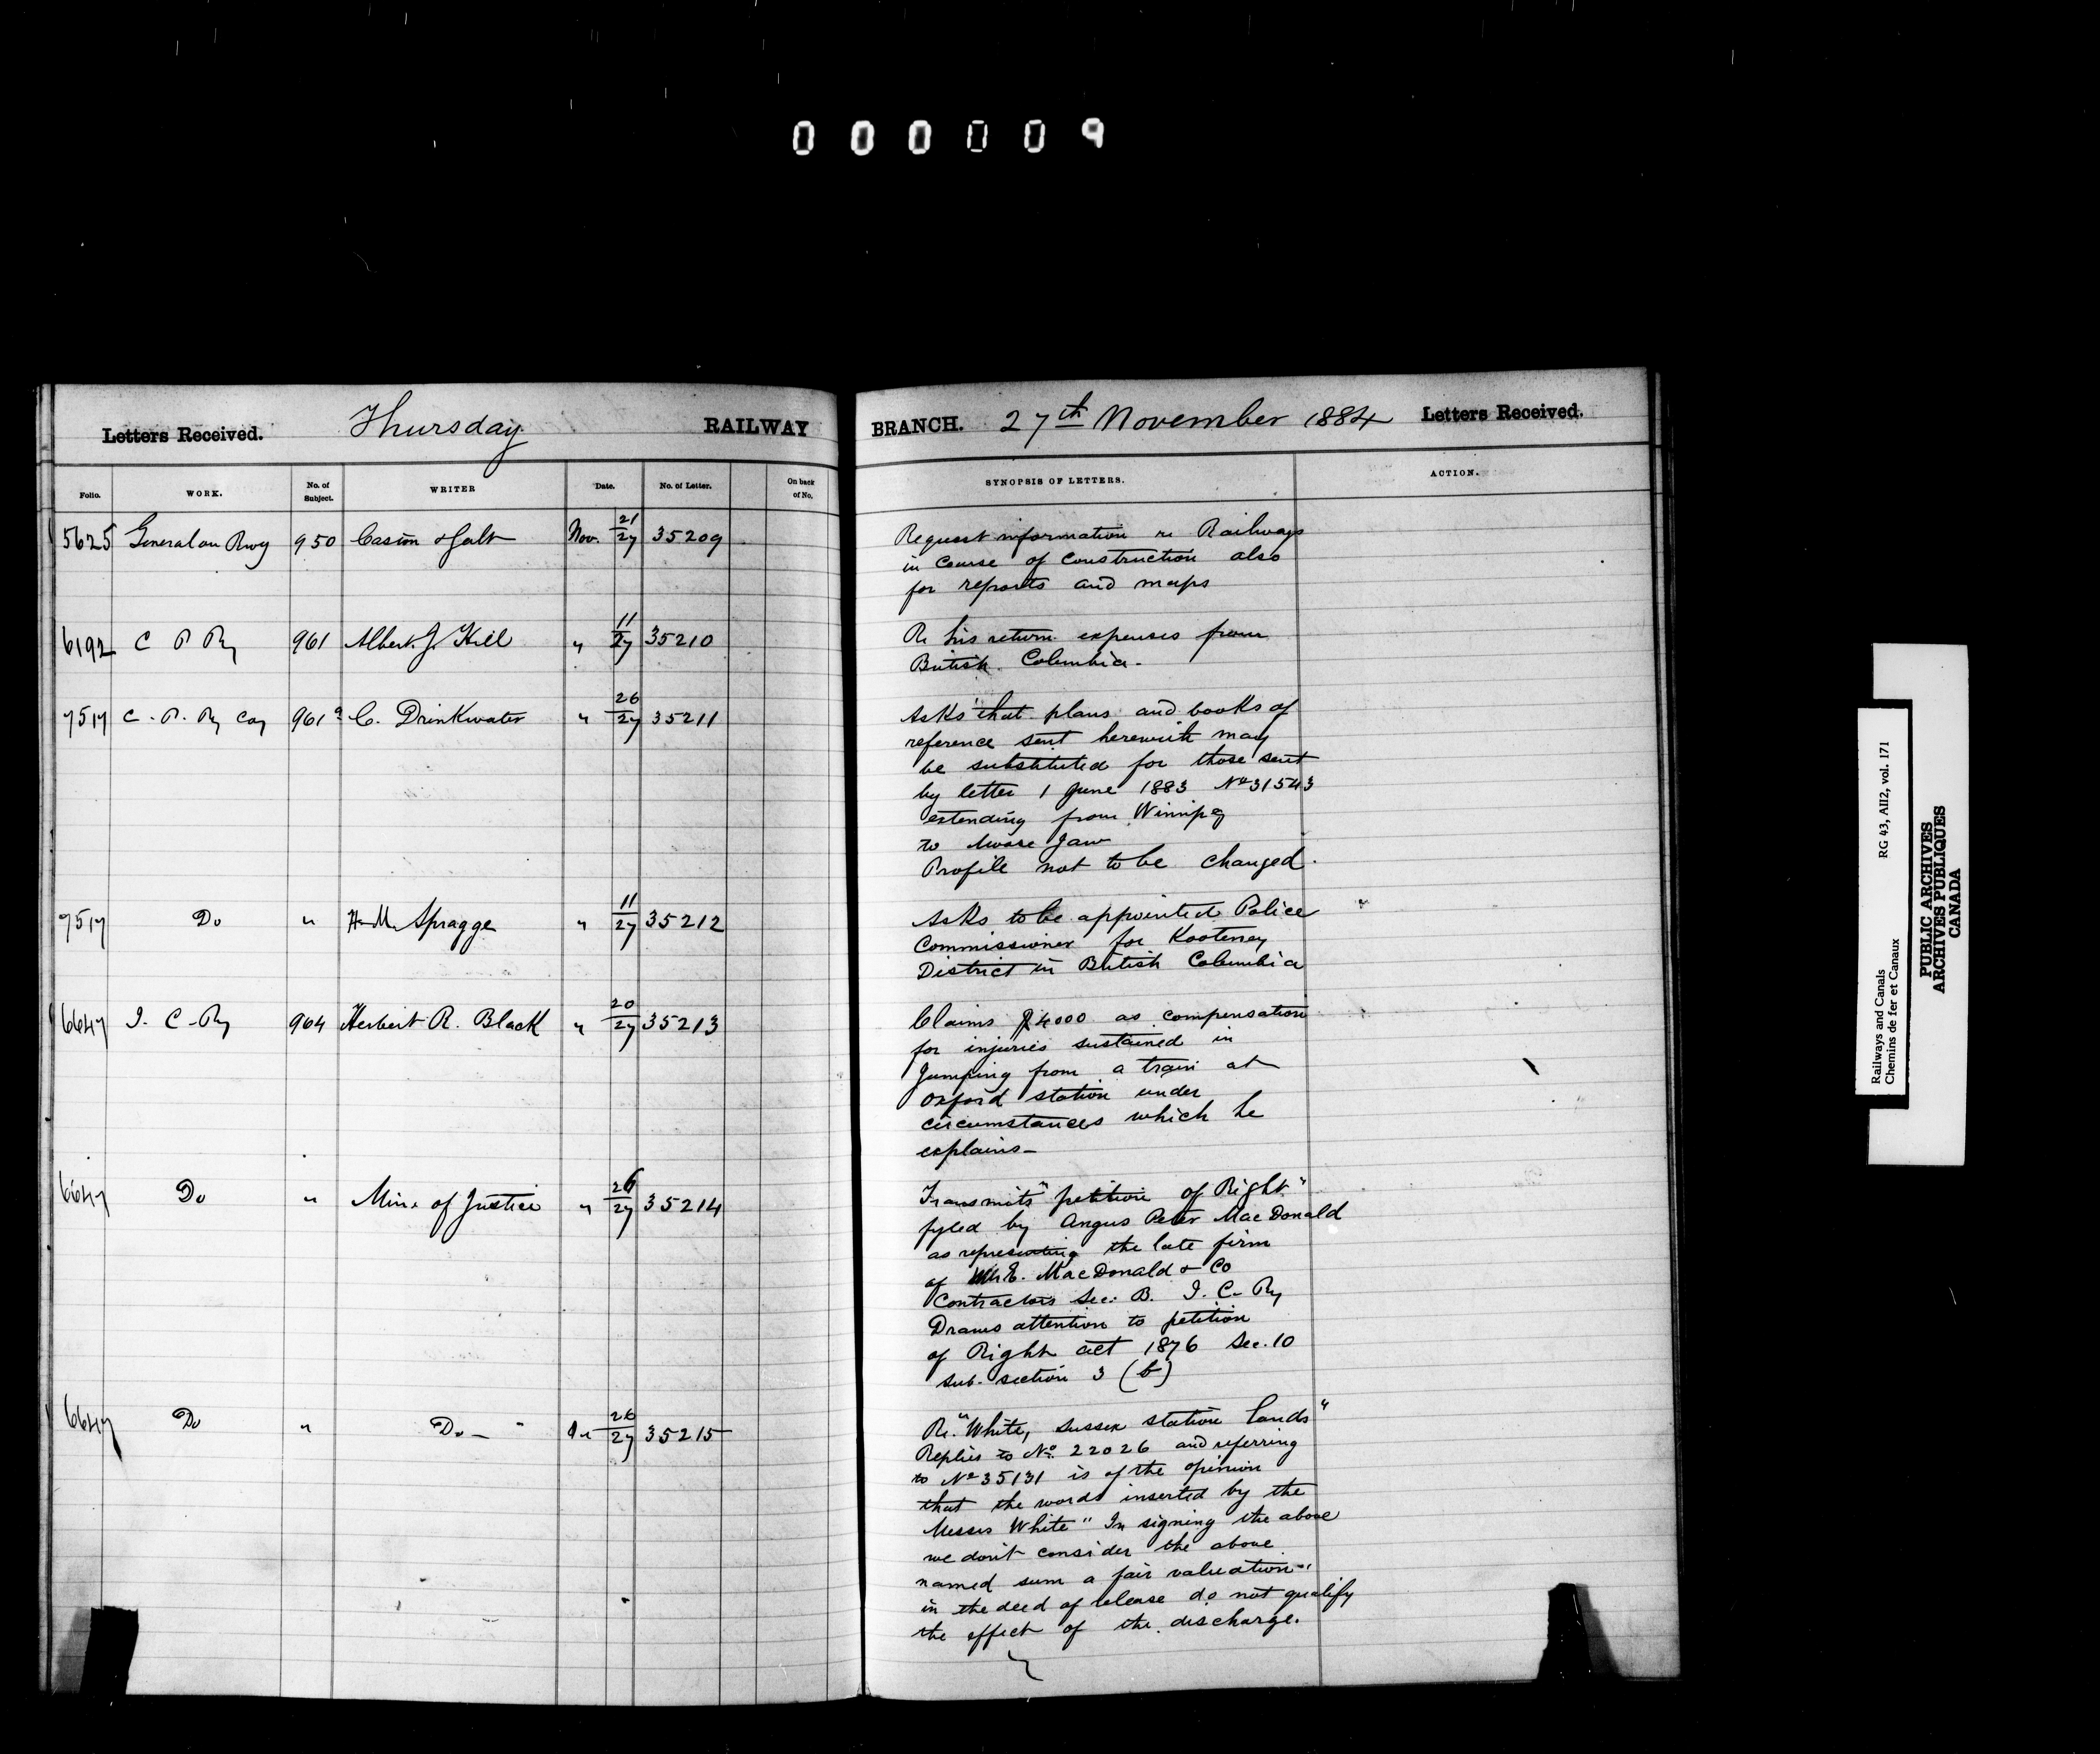 000009
Letters Received. Thursday RAILWAY BRANCH. 27th November 1884 Letters Received.
Folio. WORK. No. of Subject. WRITER Date. No. of Letter. On back of No. SYNOPSIS OF LETTERS. ACTION.
5625 General on Rwy 950 Caston & Galt Nov. 21/27 35209 Request information re Railways
in course of construction also
for reports and maps
6192 C P Ry 961 Albert J. Hill " 11/27 35210 Re his return expenses from
British Columbia -
7517 C. P. Ry Coy 961a C. Drinkwater " 26/27 35211 Asks that plans and books of
reference sent herewith may
be substituted for those sent
by letter 1 June 1883 No 31543
extending from Winnipeg
to Moose Jaw
Profile not to be changed.
7517 Do " H. M. Spragge " 11/27 35212 Asks to be appointed Police
Commissioner for Kooteney
District in British Columbia
6647 I. C. Ry 964 Herbert R. Black " 20/27 35213 Claims $4000 as compensation
for injuries sustained in
Jumping from a train at
Oxford station under
circumstances which he
explains -
6647 Do " Minr of Justice " 26/27 35214 Transmits "petition of Right"
fyled by Angus Peter MacDonald
as representing the late firm
of E. MacDonald & Co
Contractors Sec: B. I. C. Ry
Draws attention to petition
of Right act 1876 Sec. 10
sub-section 3 (b)
6647 Do " Do - " 26/27 35215 Re. "White, Sussex station lands"
Replies to No. 22026 and referring
to No 35131 is of the opinion
that the words inserted by the
Messrs White "In signing the above
we don't consider the above
named sum a fair valuation"
in the deed of release do not qualify
the effect of the discharge.
Railways and Canals RG 43, AII2, vol. 171
Chemins de fer et Canaux
PUBLIC ARCHIVES
ARCHIVES PUBLIQUES
CANADA